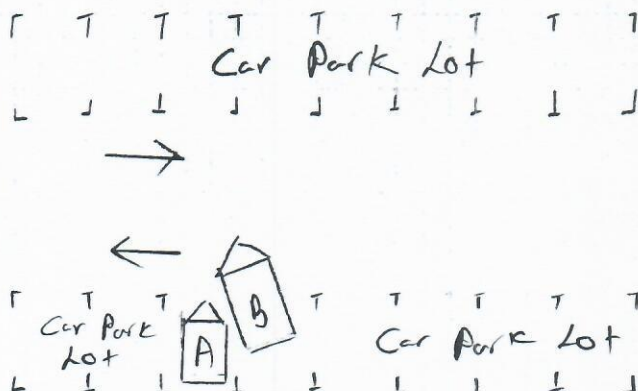 Car Park Lot
B
Car Park
Lot
A
Car Park Lot